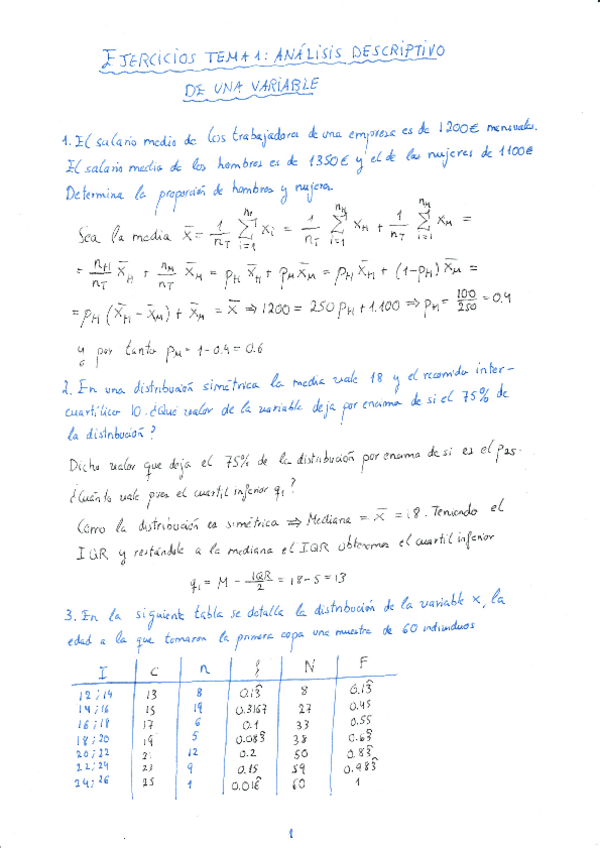 EJERCICIOS TEMA 1: ANÁLISIS DESCRIPTIVO
DE UNA VARIABLE
1. El salario medio de los trabajadores de una empresa es de 1200€ mensuales.
El salario medio de los hombres es de 1350€ y el de las mujeres de 1100€
Determina la proporción de hombres y mujeres.
Sea la media x̄ = 1/n_T Σ_{i=1}^{n_T} x_i = 1/n_T Σ_{i=1}^{n_H} x_H + 1/n_T Σ_{i=1}^{n_M} x_M =
= n_H/n_T x̄_H + n_M/n_T x̄_M = p_H x̄_H + p_M x̄_M = p_H x̄_H + (1-p_H) x̄_M =
= p_H (x̄_H - x̄_M) + x̄_M = x̄ ⇒ 1200 = 250 p_H + 1.100 ⇒ p_H = 100/250 = 0.4
y por tanto p_M = 1-0.4 = 0.6
2. En una distribución simétrica la media vale 18 y el recorrido inter-
cuartílico 10. ¿Qué valor de la variable deja por encima de si el 75% de
la distribución?
Dicho valor que deja el 75% de la distribución por encima de si es el p25.
¿Cuánto vale pues el cuartil inferior q1?
Como la distribución es simétrica ⇒ Mediana = x̄ = 18. Teniendo el
IQR y restándole a la mediana el IQR obtenemos el cuartil inferior
q1 = M - IQR/2 = 18-5 = 13
3. En la siguiente tabla se detalla la distribución de la variable X, la
edad a la que tomaron la primera copa una muestra de 60 individuos
I C n f N F
12;14 13 8 0.13̂ 8 0.13̂
14;16 15 19 0.3167 27 0.45
16;18 17 6 0.1 33 0.55
18;20 19 5 0.083̂ 38 0.63̂
20;22 21 12 0.2 50 0.83̂
22;24 23 9 0.15 59 0.983̂
24;26 25 1 0.016̂ 60 1
1